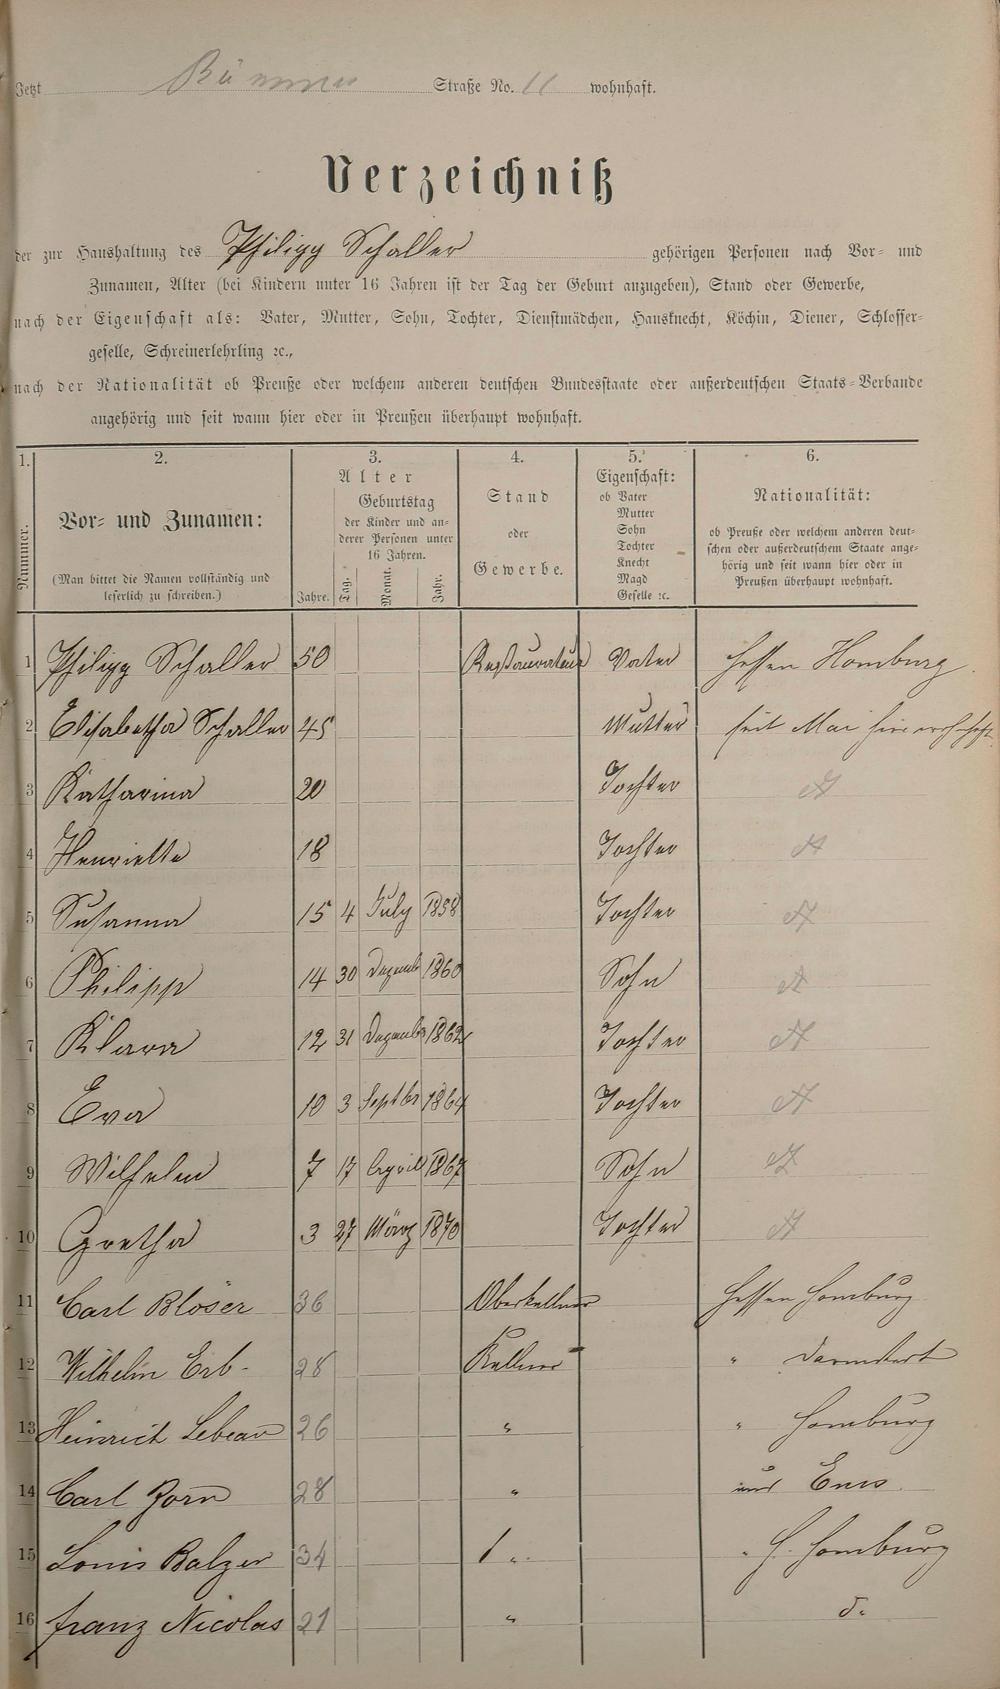 Jetzt Straße No. 11 wohnhaft.
Verzeichniß
der zur Haushaltung des Philipp Schaller gehörigen Personen nach Vor- und
Zunamen, Alter (bei Kindern unter 16 Jahren ist der Tag der Geburt anzugeben), Stand oder Gewerbe,
nach der Eigenschaft als: Vater, Mutter, Sohn, Tochter, Dienstmädchen, Hausknecht, Köchin, Diener, Schlosser-
geselle, Schreinerlehrling ꝛc.,
nach der Nationalität ob Preuße oder welchem anderen deutschen Bundesstaate oder außerdeutschen Staats-Verbande
angehörig und seit wann hier oder in Preußen überhaupt wohnhaft.
1. 2. 3. 4. 5. 6.
Nummer.
Vor- und Zunamen:
(Man bittet die Namen vollständig und
leserlich zu schreiben.)
Alter
Geburtstag
der Kinder und an-
derer Personen unter
16 Jahren.
Jahre. Tag. Monat. Jahr.
Stand
oder
Gewerbe.
Eigenschaft:
ob Vater
Mutter
Sohn
Tochter
Knecht
Magd
Geselle ꝛc.
Nationalität:
ob Preuße oder welchem anderen deut-
schen oder außerdeutschem Staate ange-
hörig und seit wann hier oder in
Preußen überhaupt wohnhaft.
1 Philipp Schaller 50 Restaurateur Vater Hessen Homburg
2 Elisabetha Schaller 45 Mutter seit Mai hier
3 Katharina 20 Tochter
4 Henriette 18 Tochter
5 Susanna 15 4 July 1858 Tochter
6 Philipp 14 30 Dezemb 1860 Sohn
7 Klara 12 31 Dezembr 1862 Tochter
8 Eva 10 3 Septbr 1864 Tochter
9 Wilhelm 7 17 April 1867 Sohn
10 Gretha 3 27 März 1870 Tochter
11 Carl Blöser 36 Oberkellner Hessen Homburg
12 Wilhelm Erb- 28 Kellner " Darmstadt
13 Heinrich Lebeau 26 " " Homburg
14 Carl Zorn 28 " Ems
15 Louis Balzer 34 " " H. Homburg
16 Franz Nicolas 21 " do